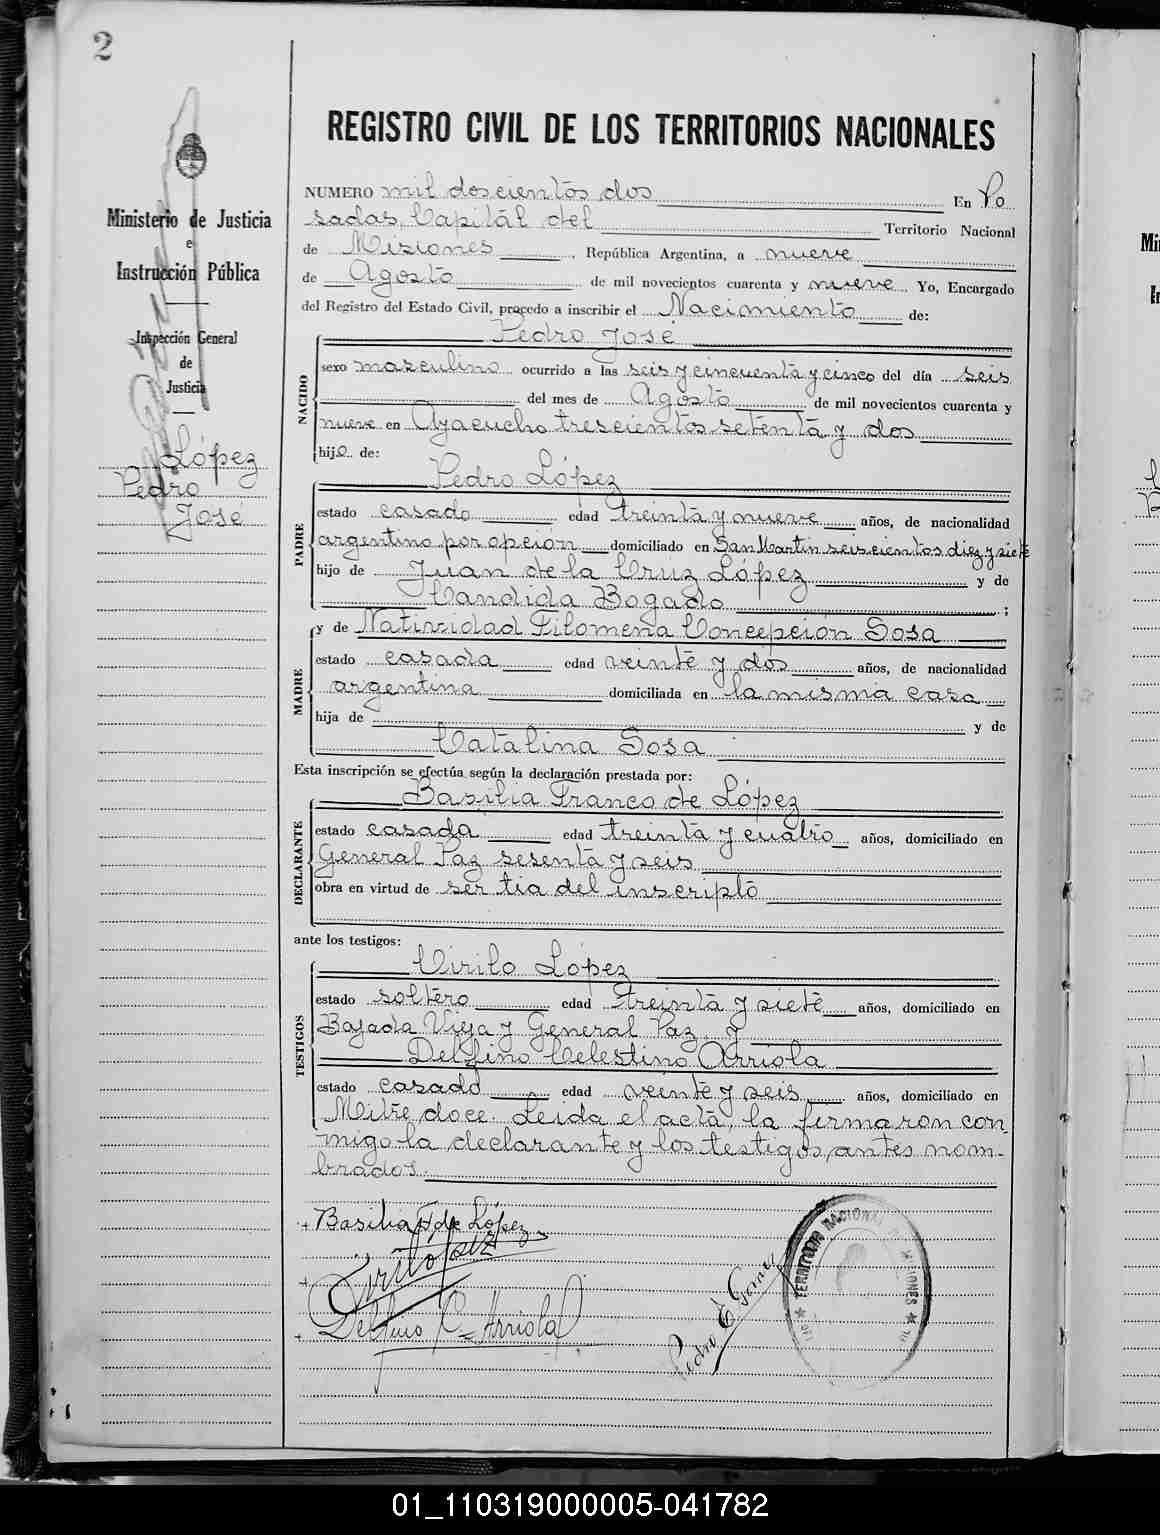 2
REGISTRO CIVIL DE LOS TERRITORIOS NACIONALES
Ministerio de Justicia
e
Instrucción Pública
Inspección General
de
Justicia
López
Pedro
José
NUMERO mil doscientos dos En Po
sadas, Capital del Territorio Nacional
de Misiones, República Argentina, a nueve
de Agosto de mil novecientos cuarenta y nueve Yo, Encargado
del Registro del Estado Civil, procedo a inscribir el Nacimiento de:
Pedro José
NACIDO
sexo masculino ocurrido a las seis y cincuenta y cinco del día seis
del mes de Agosto de mil novecientos cuarenta y
nueve en Ayacucho trescientos setenta y dos
hijo de:
Pedro López
PADRE
estado casado edad treinta y nueve años, de nacionalidad
argentino por opción domiciliado en San Martín seiscientos diez y siete
hijo de Juan de la Cruz López y de
Candida Bogado ;
y de Natividad Filomena Concepción Sosa
MADRE
estado casada edad veinte y dos años, de nacionalidad
argentina domiciliada en la misma casa
hija de y de
Catalina Sosa
Esta inscripción se efectúa según la declaración prestada por:
Basilia Franco de López
DECLARANTE
estado casada edad treinta y cuatro años, domiciliado en
General Paz sesenta y seis
obra en virtud de ser tia del inscripto
ante los testigos:
Cirilo López
TESTIGOS
estado soltero edad treinta y siete años, domiciliado en
Bajada Vieja y General Paz, y
Delfino Celestino Arriola
estado casado edad veinte y seis años, domiciliado en
Mitre doce. Leida el acta, la firmaron con
migo la declarante y los testigos antes nom-
brados.
Basilia F. de López
Cirilo López
Delfino C. Arriola
Pedro E. Gomez
TERRITORIO NACIONAL MISIONES
01_110319000005-041782